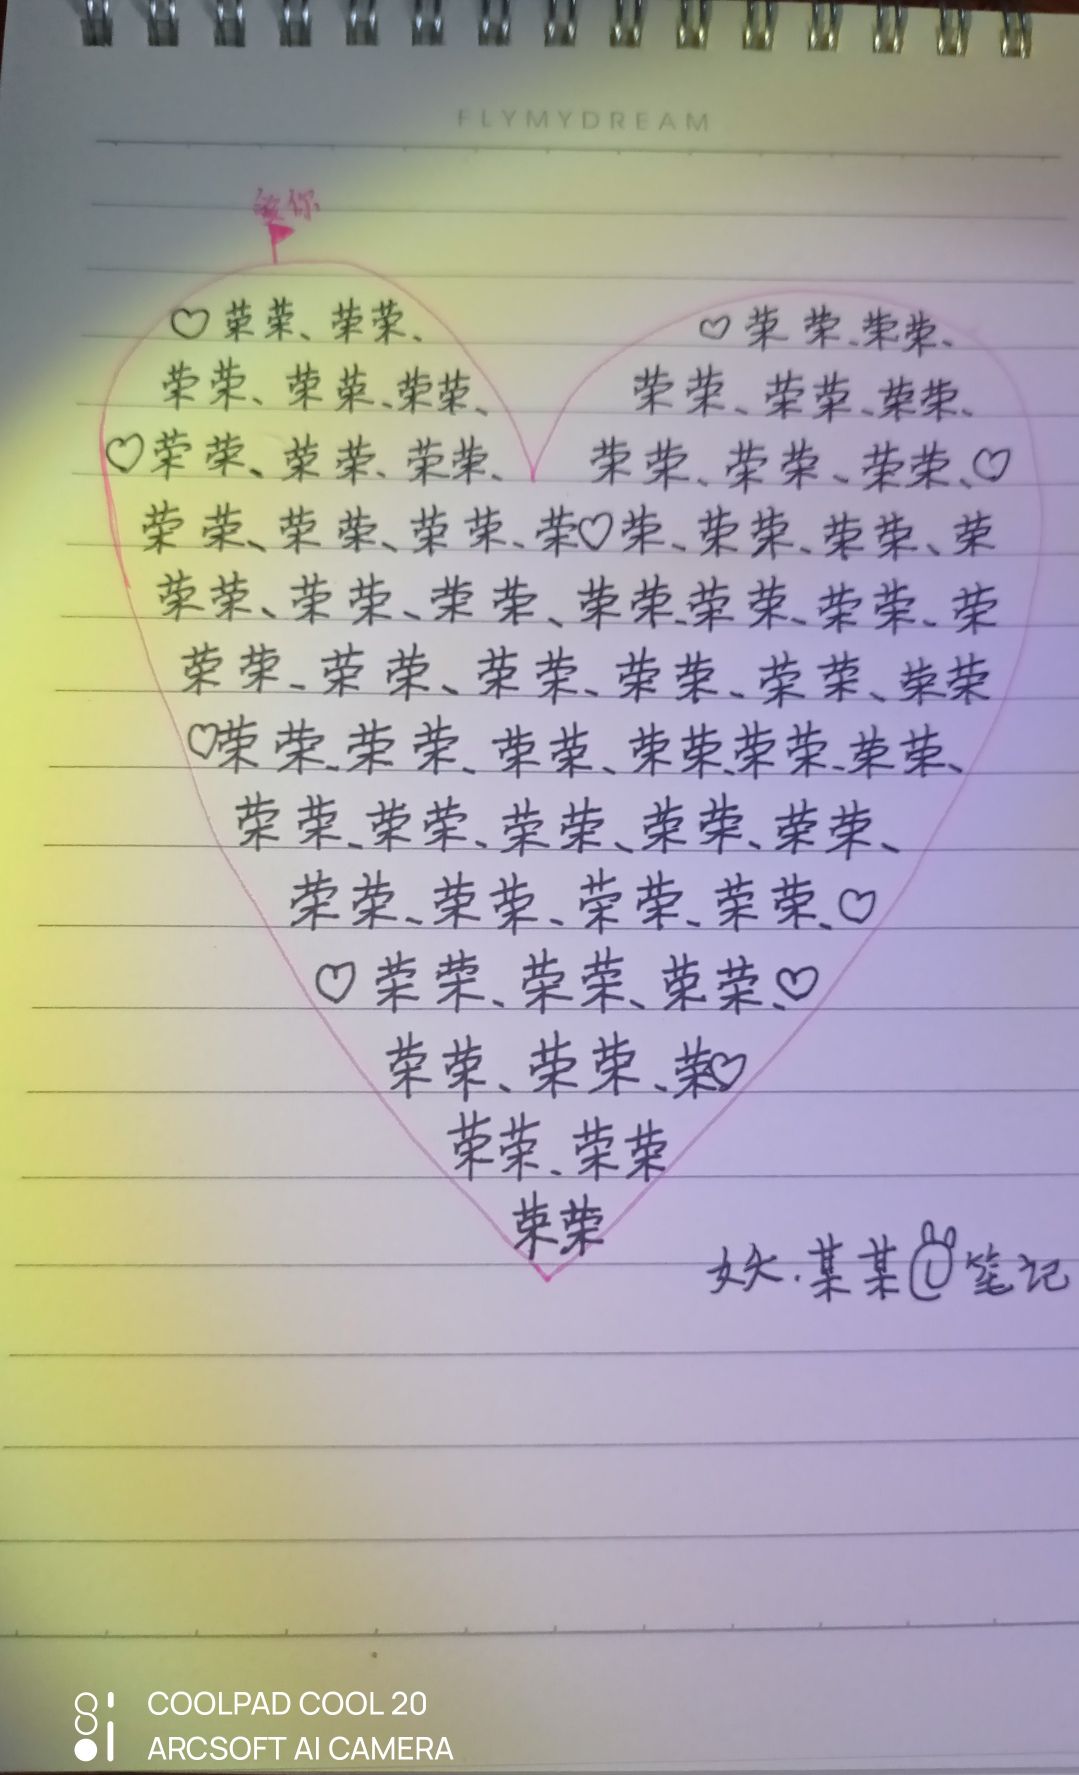 FLYMYDREAM
爱你
♡荣荣、荣荣、 ♡荣荣、荣荣、
荣荣、荣荣、荣荣、 荣荣、荣荣、荣荣、
♡荣荣、荣荣、荣荣、 荣荣、荣荣、荣荣、♡
荣荣、荣荣、荣荣、荣♡荣、荣荣、荣荣、荣
荣荣、荣荣、荣荣、荣荣、荣荣、荣荣、荣
荣荣、荣荣、荣荣、荣荣、荣荣、荣荣
♡荣荣、荣荣、荣荣、荣荣、荣荣、荣荣、
荣荣、荣荣、荣荣、荣荣、荣荣、
荣荣、荣荣、荣荣、荣荣、♡
♡荣荣、荣荣、荣荣、♡
荣荣、荣荣、荣♡
荣荣、荣荣
荣荣
妖.某某笔记
COOLPAD COOL 20
ARCSOFT AI CAMERA